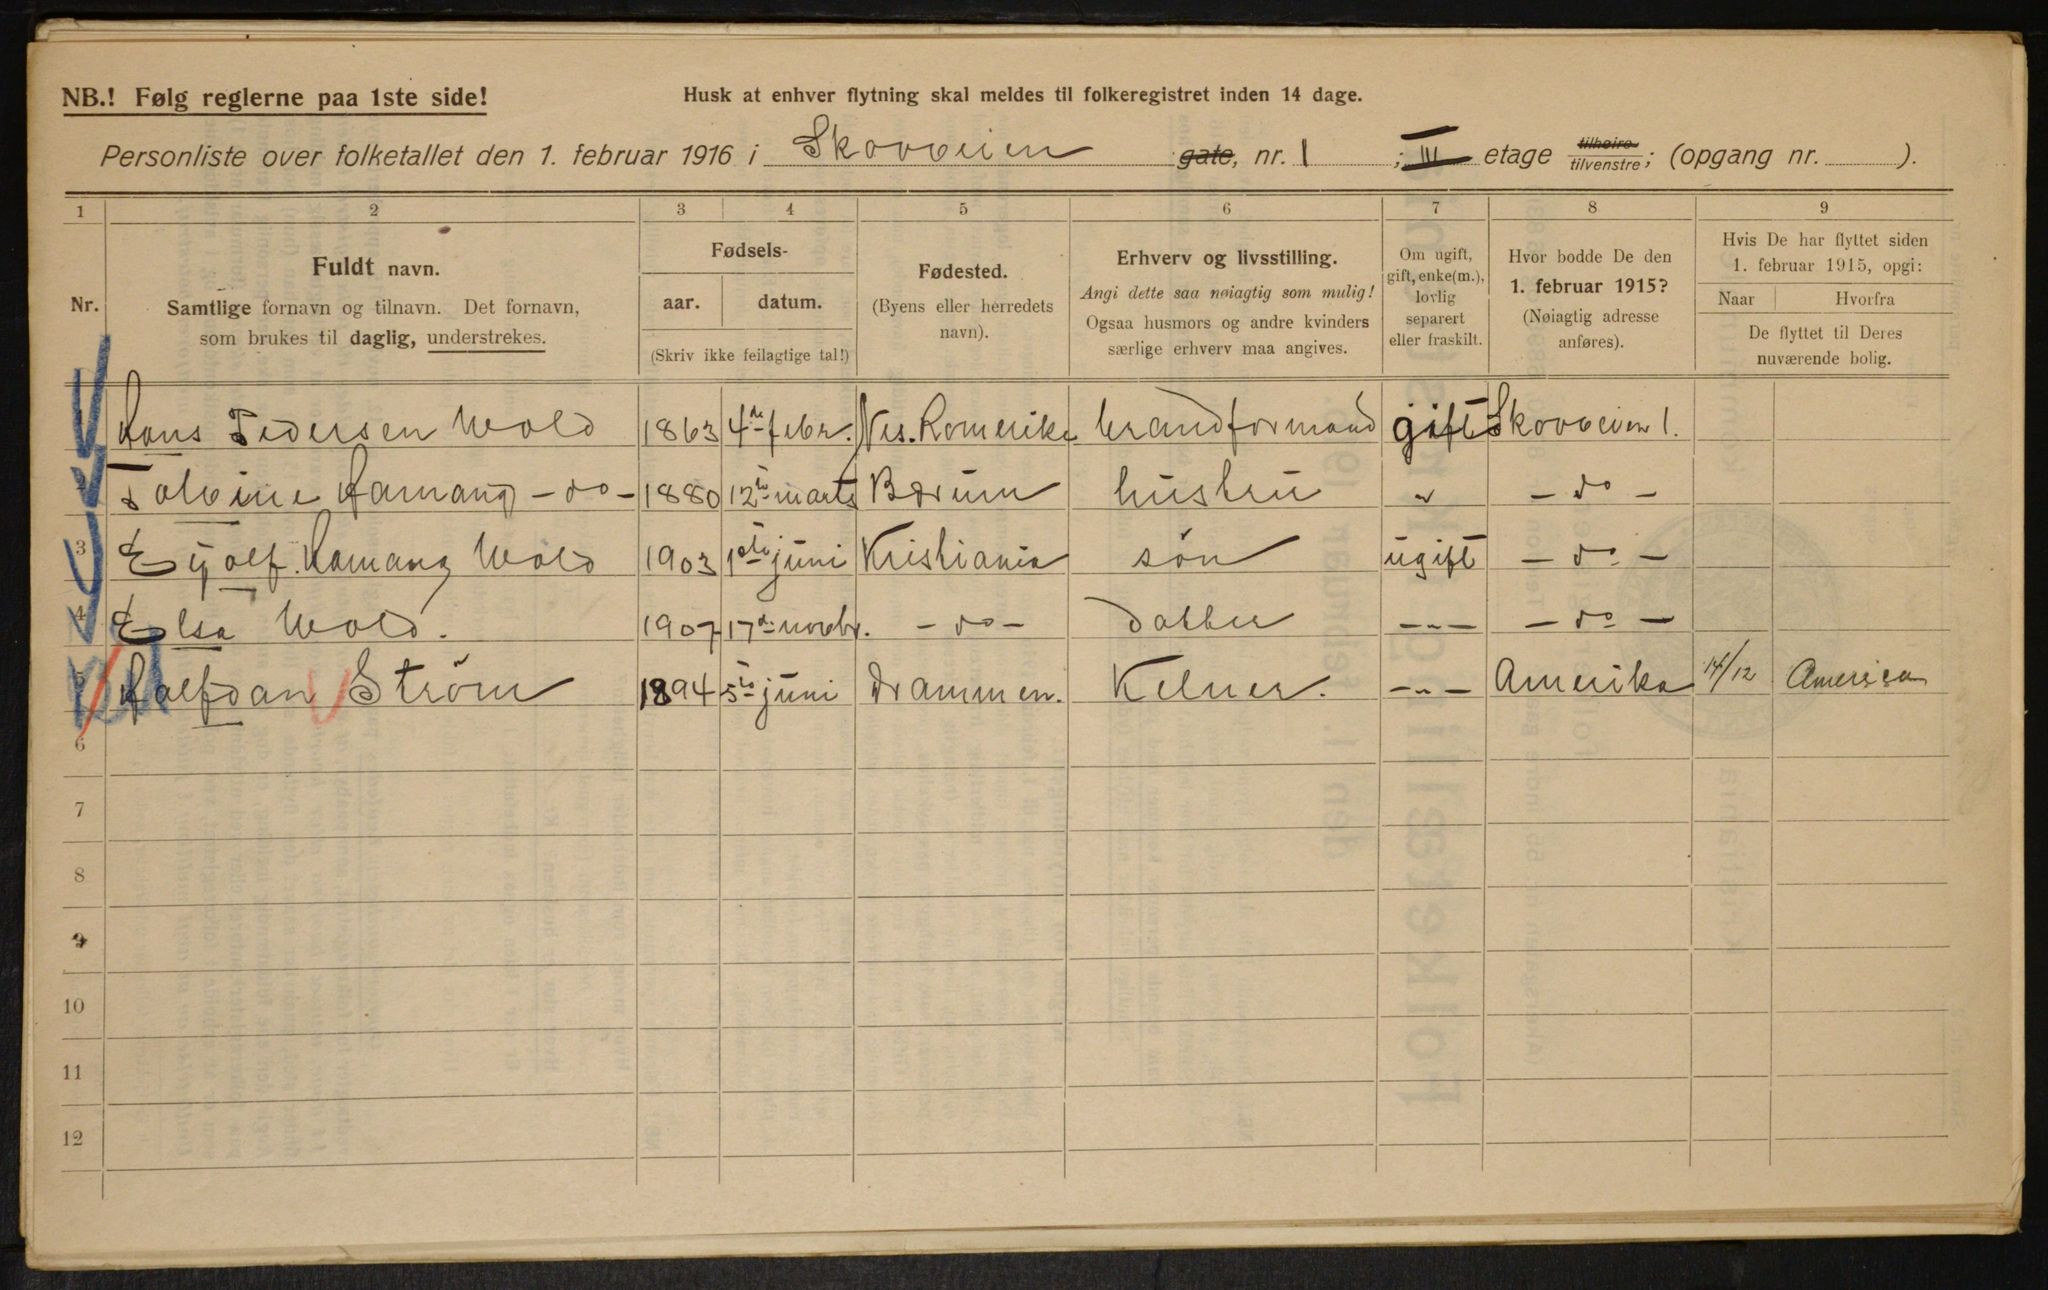 NB.! Følg reglerne paa 1ste side!
Husk at enhver flytning skal meldes til folkeregistret inden 14 dage.
Personliste over folketallet den 1. februar 1916 i Skovveien gate, nr. 1 ; III etage tilhøire tilvenstre; (opgang nr. ).
1 2 3 4 5 6 7 8 9
Nr.
Fuldt navn.
Samtlige fornavn og tilnavn. Det fornavn,
som brukes til daglig, understrekes.
Fødsels-
aar. datum.
(Skriv ikke feilagtige tal!)
Fødested.
(Byens eller herredets
navn).
Erhverv og livsstilling.
Angi dette saa nøiagtig som mulig!
Ogsaa husmors og andre kvinders
særlige erhverv maa angives.
Om ugift,
gift, enke(m.),
lovlig
separert
eller fraskilt.
Hvor bodde De den
1. februar 1915?
(Nøiagtig adresse
anføres).
Hvis De har flyttet siden
1. februar 1915, opgi:
Naar Hvorfra
De flyttet til Deres
nuværende bolig.
Hans Pedersen Wold 1863 4de febr. Nes. Romerike brandformand gift Skovveien 1.
Hamang - do - 1880 12te marts Bærum hustru " - do -
3 Eyolf Hamang Wold 1903 1ste juni Kristiania søn ugift - do -
4 Elsa Wold. 1907 17de novbr. - do - datter - " - - do -
5 Halfdan Strøm 1894 5te juni Drammen. Kelner. - " - Amerika 14/12 America
6
7
8
9
10
11
12